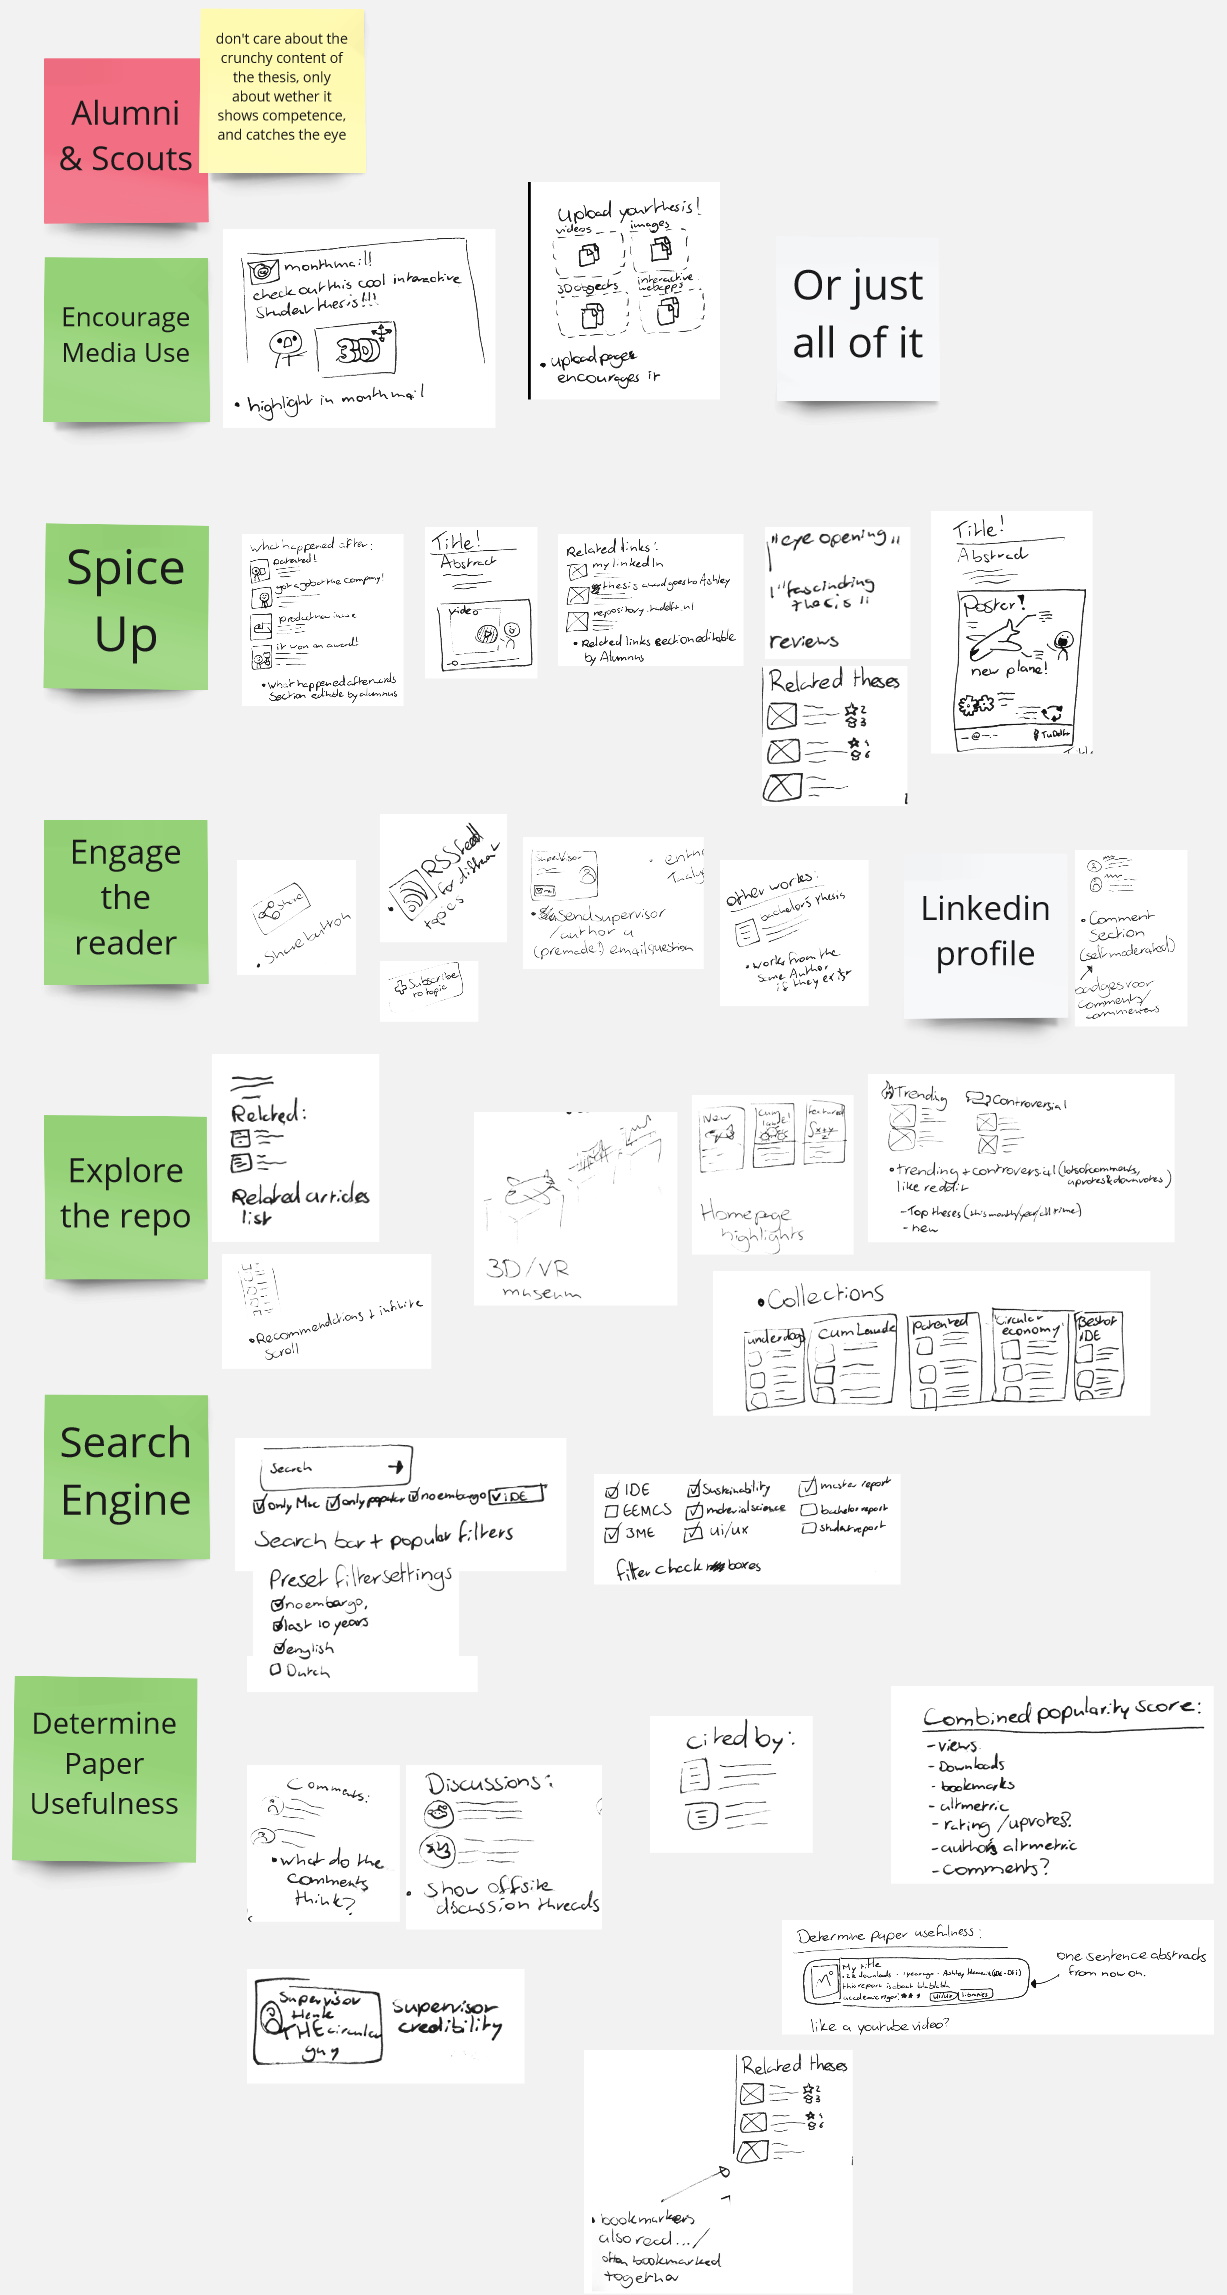 Alumni
& Scouts
don't care about the
crunchy content of
the thesis, only
about wether it
shows competence,
and catches the eye
Encourage
Media Use
monthmail!
check out this cool interactive
student thesis!!!
3D
• highlight in monthmail
Upload your thesis!
videos
images
3D objects
interactive
webapps
• upload page
encourages it
Or just
all of it
Spice
Up
what happened after:
patented!
got a job at the company!
product now in use
it won an award!
• what happened afterwards
section editable by alumnus
Title!
Abstract
video
Related links:
my linkedIn
thesis award goes to Ashley
repository.tudelft.nl
• Related links section editable
by Alumnus
"eye opening"
"fascinating
thesis"
reviews
Related theses
2
3
1
6
Title!
Abstract
Poster!
new plane!
TuDelft
Engage
the
reader
share
• Share button
• RSS feed
for different
topics
Subscribe
to topic
Supervisor
mail
• Send supervisor
/author a
(premade!) email question
other works:
bachelors thesis
• works from the
same Author
if they exist
Linkedin
profile
• Comment
Section
(self moderated)
badges voor
comments/
commenters
Explore
the repo
Related:
Related articles
list
• Recommendations + infinite
scroll
3D/VR
museum
New
Cum
laude!
featured
Homepage
highlights
Trending
Controversial
• trending + controversial (lots of comments,
upvotes & downvotes)
like reddit
- Top theses (this month/year/all time)
- new
• Collections
underdogs
Cum Laude
patented
Circular
economy
Best of
IDE
Search
Engine
Search
only Msc
only popular
no embargo
IDE
Search bar + popular filters
Preset filter settings
no embargo,
last 10 years
english
Dutch
IDE
Sustainability
master report
EEMCS
material science
bachelor report
3ME
ui/ux
student report
filter check boxes
Determine
Paper
Usefulness
Comments:
• what do the
comments
think?
Discussions:
• Show offsite
discussion threads
cited by:
Combined popularity score:
- views
- Downloads
- bookmarks
- altmetric
- rating / upvotes?
- authors altmetric
- comments?
Supervisor
Henk
THE circular
guy
supervisor
credibility
Determine paper usefulness:
My title
this report is about blablabla
ui/ux
one sentence abstracts
from now on.
like a youtube video?
Related theses
2
3
1
6
• bookmarkers
also read.../
often bookmarked
together